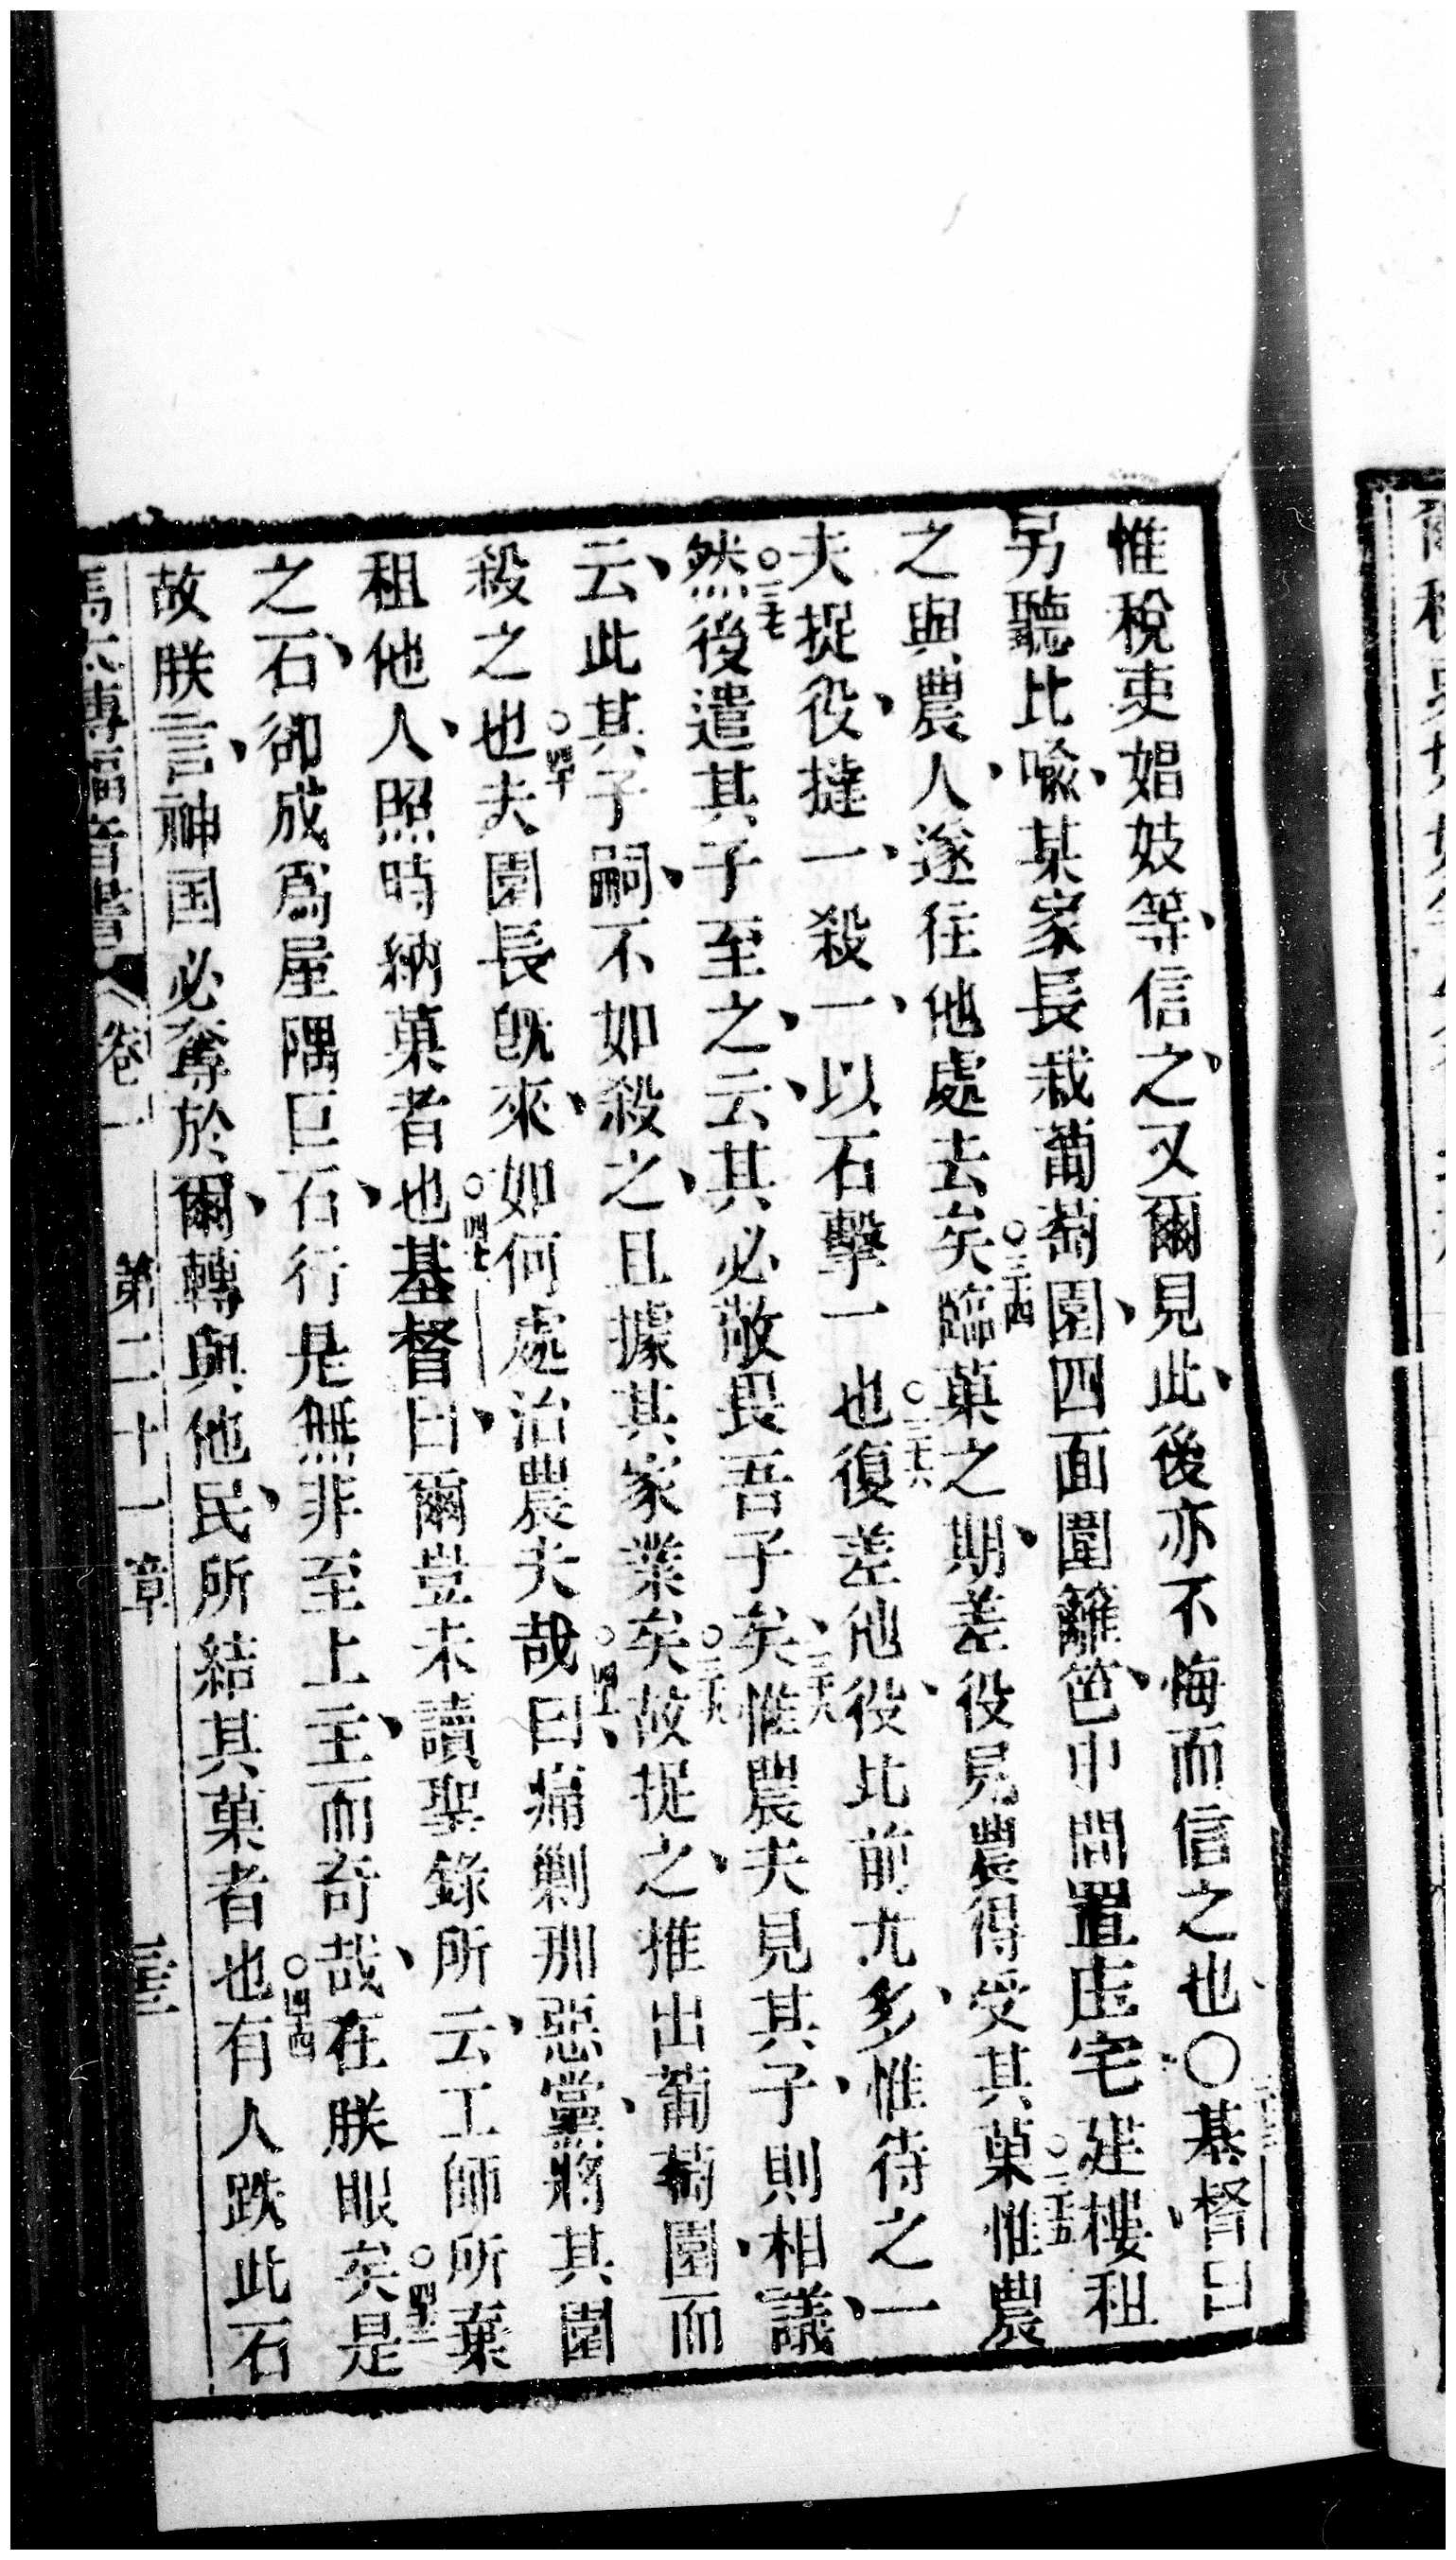 惟稅吏娼妓等、信之、又爾見此、後亦不悔而信之也○三十三基督曰、
另聽比喻、某家長栽葡萄園、四面圍籬笆、中間置庄宅建樓租
之與農人、遂往他處去矣○三十四臨菓之期、差役見農得受其菓○三十五惟農
夫捉役、撻一、殺一、以石擊一也○三十六復差他役、比前尤多、惟待之一
然○三十七後遣其子至之、云、其必敬畏吾子矣、三十八惟農夫見其子、則相議、
云、此其子嗣、不如殺之、且據其家業矣○三十九故捉之、推出葡萄園、而
殺之也○四十夫園長既來、如何處治農夫哉○四十一曰、痛剿那惡黨、將其園
租他人、照時納菓者也○四十二基督曰、爾豈未讀聖錄所云、工師所棄
之石、卻成為屋隅巨石、行是無非至上主、而奇哉、在朕眼矣○四十三是
故朕言、神国必奪於爾、轉與他民、所結其菓者也○四十四有人跌此石
卷一 第二十一章